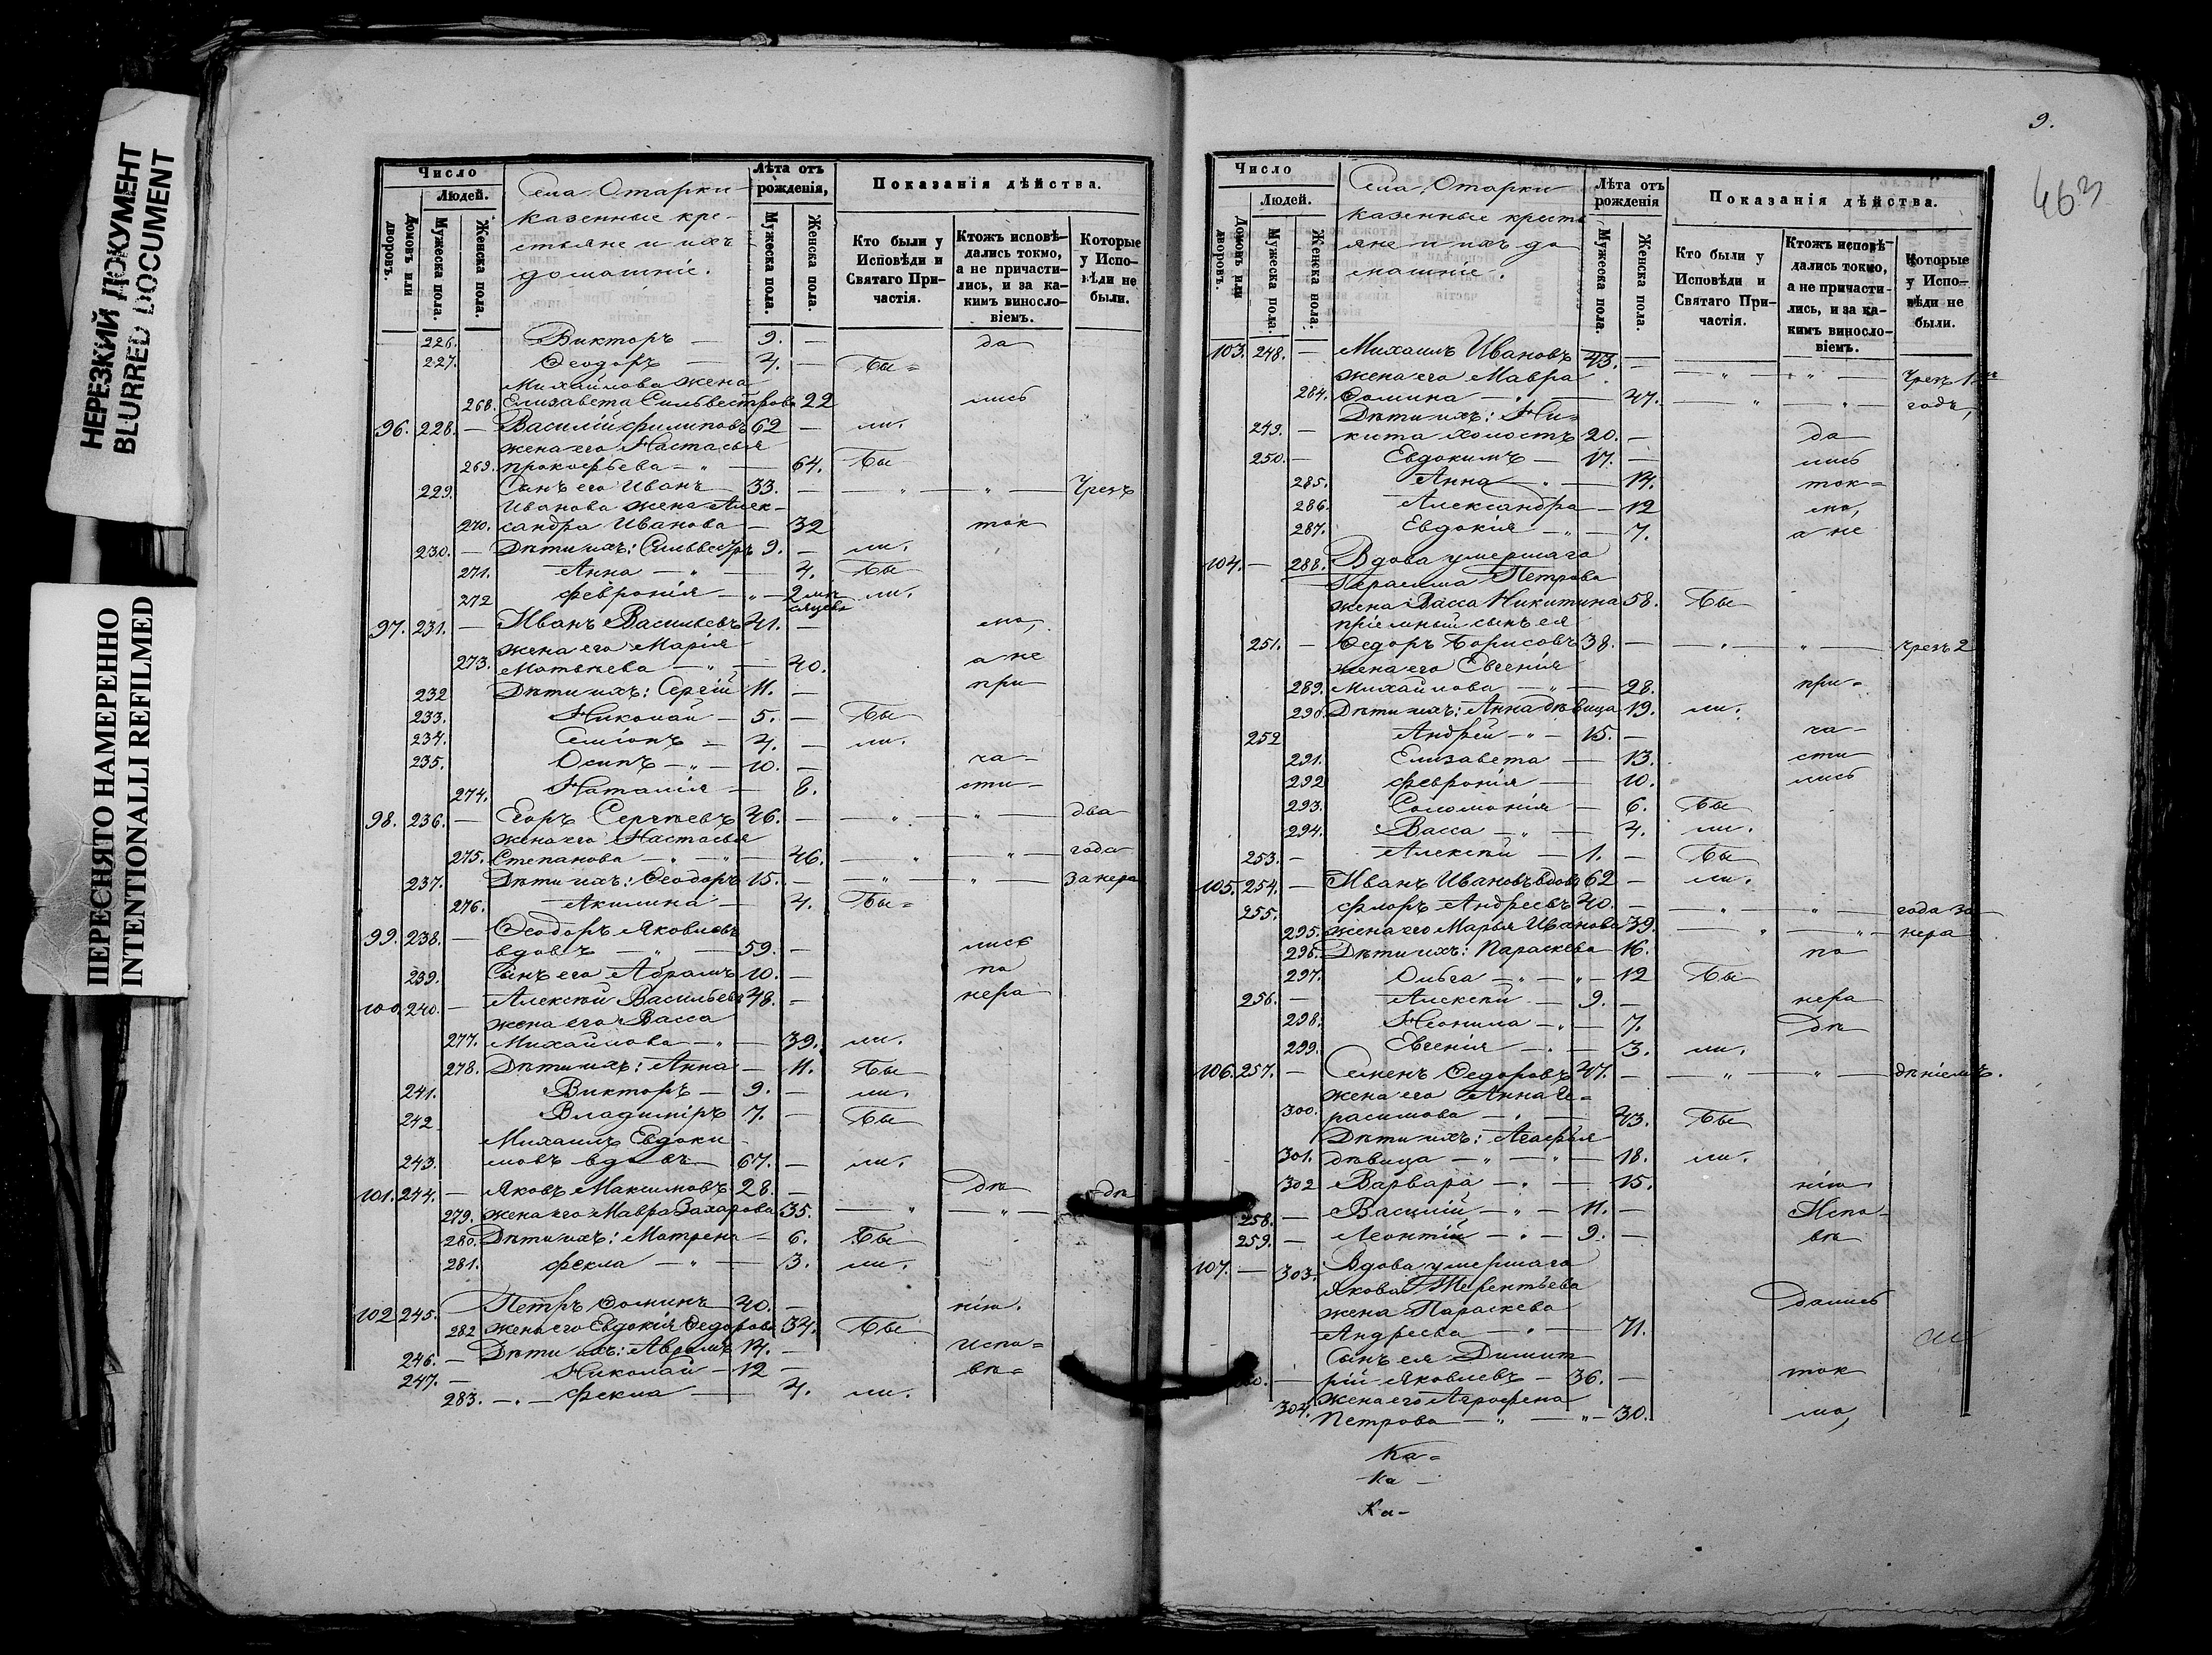 НЕРЕЗКИЙ ДОКУМЕНТ
BLURRED DOCUMENT
ПЕРЕСНЯТО НАМЕРЕННО
INTENTIONALLI REFILMED
Число
Людей.
Домовъ или дворовъ.
Мужеска пола.
Женска пола.
Села Отарки
казенные кре-
стьяне и ихъ
домашніе.
Лѣта отъ рожденія,
Мужеска пола.
Женска пола.
Показанія дѣйства.
Кто были у Исповѣди и Святаго Причастія.
Ктожъ исповѣдались токмо, а не причастились, и за какимъ винословіемъ.
Которые у Исповѣди не были.
226. Викторъ — 9. — да
227. Ѳеодоръ — 4. — Бы=
Михайлова жена
268. Елизавета Сильвестрова 22 лись
96. 228. — Василій Филиповъ 62 — ли.
жена его Настасья
269. Прокофьева — " — 64. Бы
229. Сынъ его Иванъ 33. — — " — " — Чрезъ
Иванова жена Алек-
270. сандра Иванова — 32 ток
230. — Дѣти ихъ: Сильвестръ 9. — ли.
271. Анна — " — 4. Бы
272 Февронія — " — 2 мѣсяцевъ ли.
97. 231. — Иванъ Васильевъ 41. — мо,
жена его Марія
273. Матвѣева — " — 40. а не
232 Дѣти ихъ: Сергій 11. — при
233. Николай — 5. — Бы
234. Симіонъ — 4. — ли.
235. Осипъ — " — 10. — ча-
274. Наталія — 8. сти-
98. 236. — Егоръ Сергѣевъ 46. — — " — " — два
жена его Настасья
275. Степанова — " — " — 46. — " — " — года
237. Дѣти ихъ: Ѳеодоръ 15. — — " — " — за нера
276. Акилина — 4. Бы=
99. 238. — Ѳеодоръ Яковлевъ
вдовъ — " — 59. — лись
239. Сынъ его Абрамъ 10. — по
100. 240. — Алексѣй Васильевъ 48. — нера
жена его Васса
277. Михайлова — " — 39. ли.
278. Дѣти ихъ: Анна — 11. Бы
241. Викторъ — 9. — ли.
242 Владиміръ 7. — Бы
Михаилъ Евдоки-
243. мовъ вдовъ 67. — ли.
101. 244. — Яковъ Максимовъ 28. — дѣ дѣ
279. жена его Мавра Захарова 35. — " — " —
280. Дѣти ихъ: Матрена — 6. Бы
281. Фекла — " — 3. ли.
102 245. Петръ Ѳоминъ 40. — нію.
282 жена его Евдокія Ѳедорова 34. Бы
246. — Дѣти ихъ: Авраамъ 14. — испо=
247. — Николай — 12 — вѣ=
283. — " — Фекла — 4. ли.
9.
463
Число
Людей.
Домовъ или дворовъ.
Мужеска пола.
Женска пола.
Села Отарки
казенные кресть
яне и ихъ до
машніе.
Лѣта отъ рожденія
Мужеска пола.
Женска пола.
Показанія дѣйства.
Кто были у Исповѣди и Святаго Причастія.
Ктожъ исповѣдались токмо, а не причастились, и за какимъ винословіемъ.
Которые у Исповѣди не были.
103. 248. — Михаилъ Ивановъ 43. —
жена его Мавра — " — " — Чрезъ 1нъ
284. Ѳомина — " — 47. — " — " — годъ,
Дѣти ихъ: Ни-
249. — кита холостъ 20. — да
250. — Евдокимъ — 17. — лись
285. Анна — " — 14. ток=
286. Александра — 12 мо,
287. Евдокія — " — 7. а не
104. — 288. Вдова умершаго
Герасима Петрова
жена Васса Никитина 58. Бы
пріемный сынъ ея
251. — Ѳедоръ Борисовъ 38. — — " — " — чрезъ 2
жена его Евгенія
289. Михайлова — " — 28. при=
290 Дѣти ихъ: Анна дѣвица 19. ли.
252 Андрей — " — 15. — ча-
291. Елизавета — 13. сти
292 Февронія — 10. лись
293. Соломонія — 6. Бы
294. Васса — " — 4. ли.
253. — Алексѣй — 1. — Бы
105. 254. — Иванъ Ивановъ вдовъ 62 — ли.
255. Флоръ Андреевъ 40. — — " — " — года за
295. жена его Марья Иванова 39. — " — " — нера
296. Дѣти ихъ: Параскева 16. по
297. Ольга — " — " — 12 Бы
256. — Алексѣй — 9. — нера
298. Неонила — " — 7. дѣ
299. Евгенія — " — 3. ли.
106. 257. — Семенъ Ѳедоровъ 47. — — " — " — дѣніемъ.
жена его Анна Ге-
300. расимова — " — 43. Бы
Дѣти ихъ: Агафья
301. дѣвица — " — " — 18. ли.
302 Варвара — " — 15. нію
258. — Василій — " — 11. — Испо-
259. — Леонтій — " — 9. — вѣ
107. — 303. Вдова умершаго
Якова Терентьева
жена Параскева дались
Андреева — " — 71.
Сынъ ея Димит
— рій Яковлевъ — 36. — ток
жена его Агрофена
304. Петрова — " — " — 30. мо,
Ка=
Ка —
Ка-